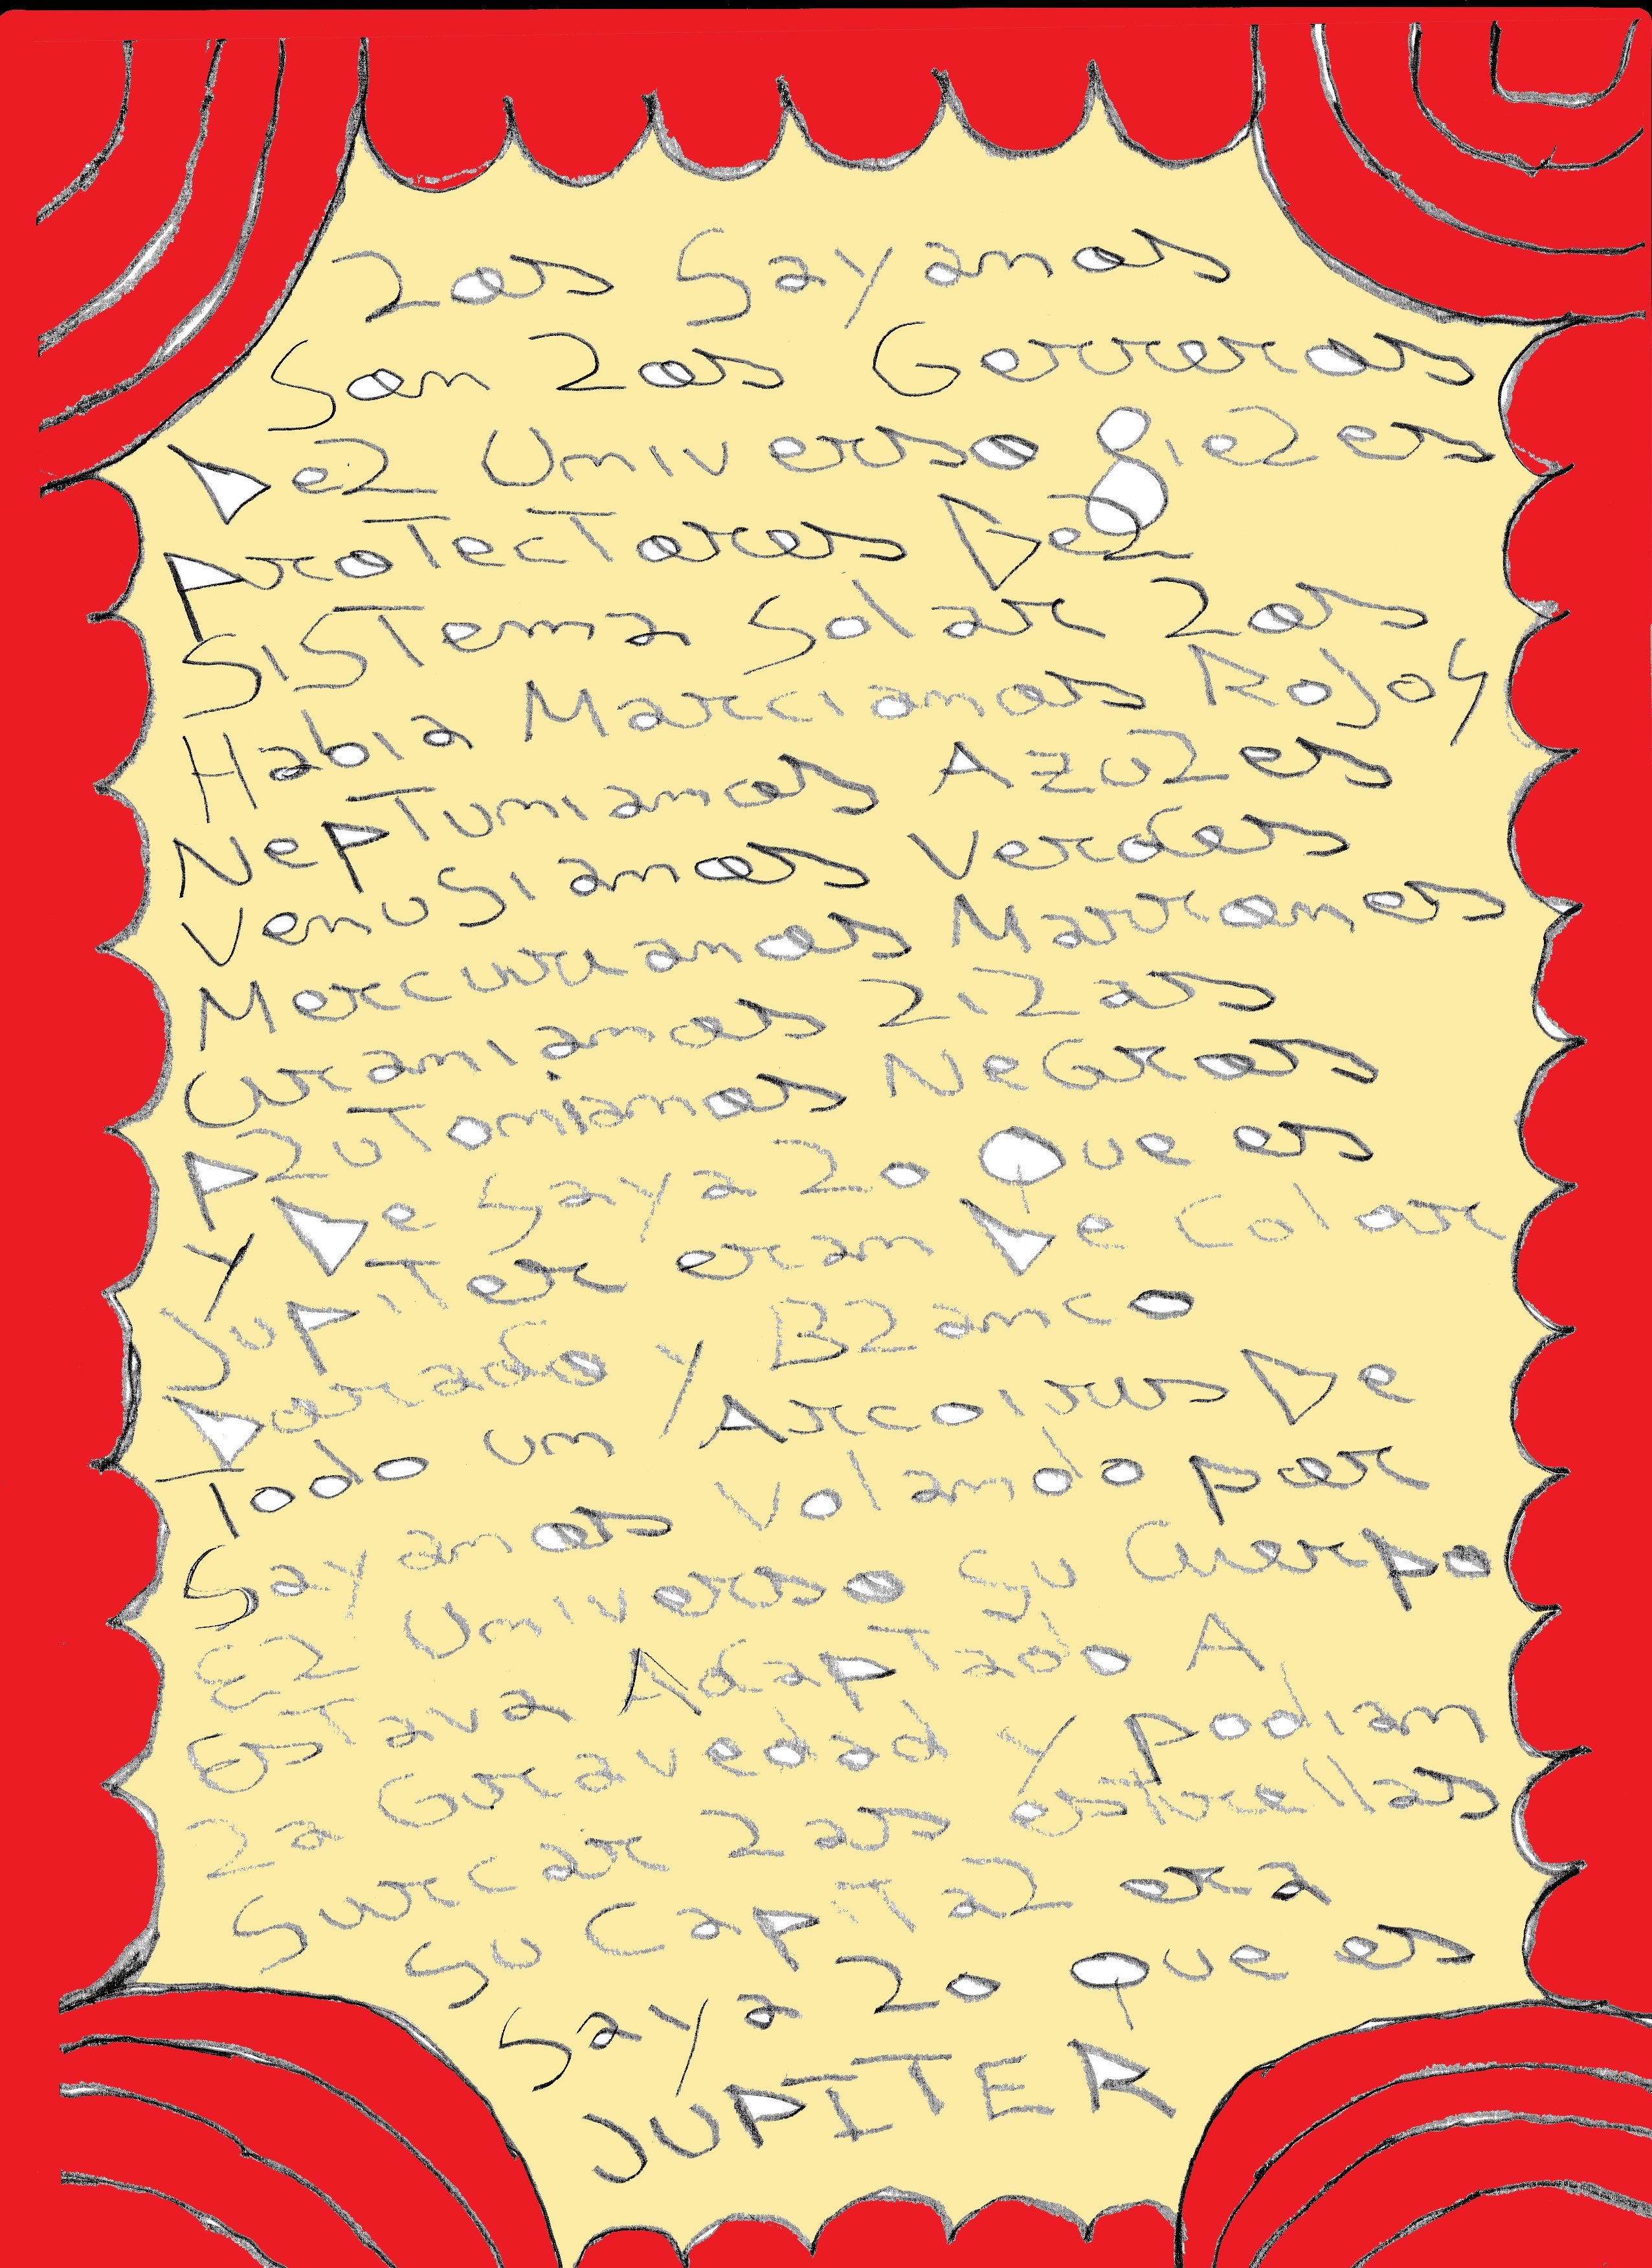 Los Sayanos
Son Los Gerreros
Del Universo fieles
protectores Del
Sistema Solar Los
Habia Marcianos Rojos
Neptunianos Azules
Venusianos Verdes
Mercurianos Marrones
Uranianos Lilas
Plutonianos Negros
y De Saya Lo Que es
Jupiter eran De Color
Dorado y Blanco
Todo un Arcoiris De
Sayanos Volando por
El Universo Su Cuerpo
Estava Adaptado A
La Gravedad y podian
Surcar Las estrellas
Su Capital era
Saya Lo Que es
JUPITER